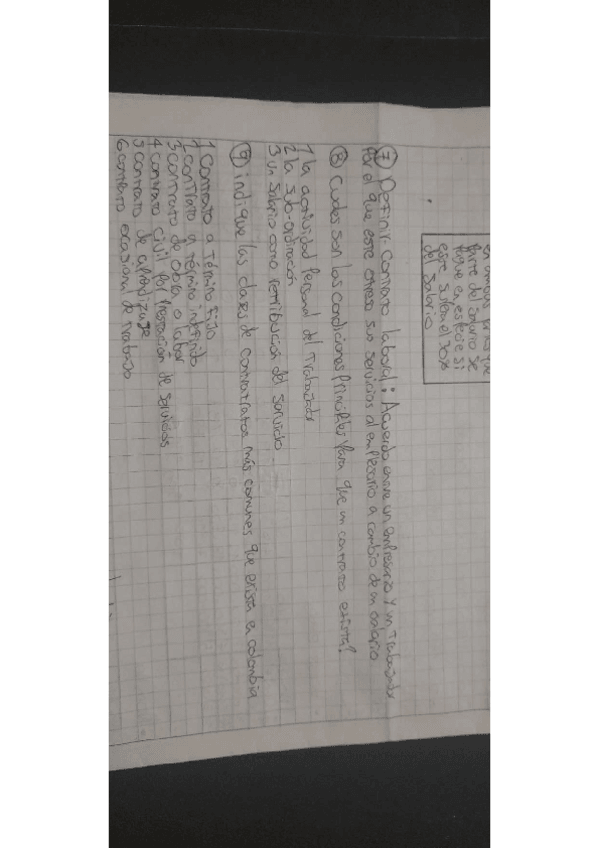 parte del salario se
pague en especie si
este supera el 30%
del salario
⑦ Definir contrato laboral: Acuerdo entre un empresario y un trabajador
por el que este ofrece sus servicios al empresario a cambio de un salario
⑧ Cuales son las condiciones principales para que un contrato exista?
1 la actividad personal del trabajador
2 la sub-ordinación
3 un salario como retribución del servicio.
⑨ indique las clases de contratatos más comunes que existen en colombia
1 contrato a término fijo
2 contrato a término indefinido
3 contrato de obra o labor
4 contrato civil por prestación de servicios
5 contrato de aprendizaje
6 contrato ocasional de trabajo